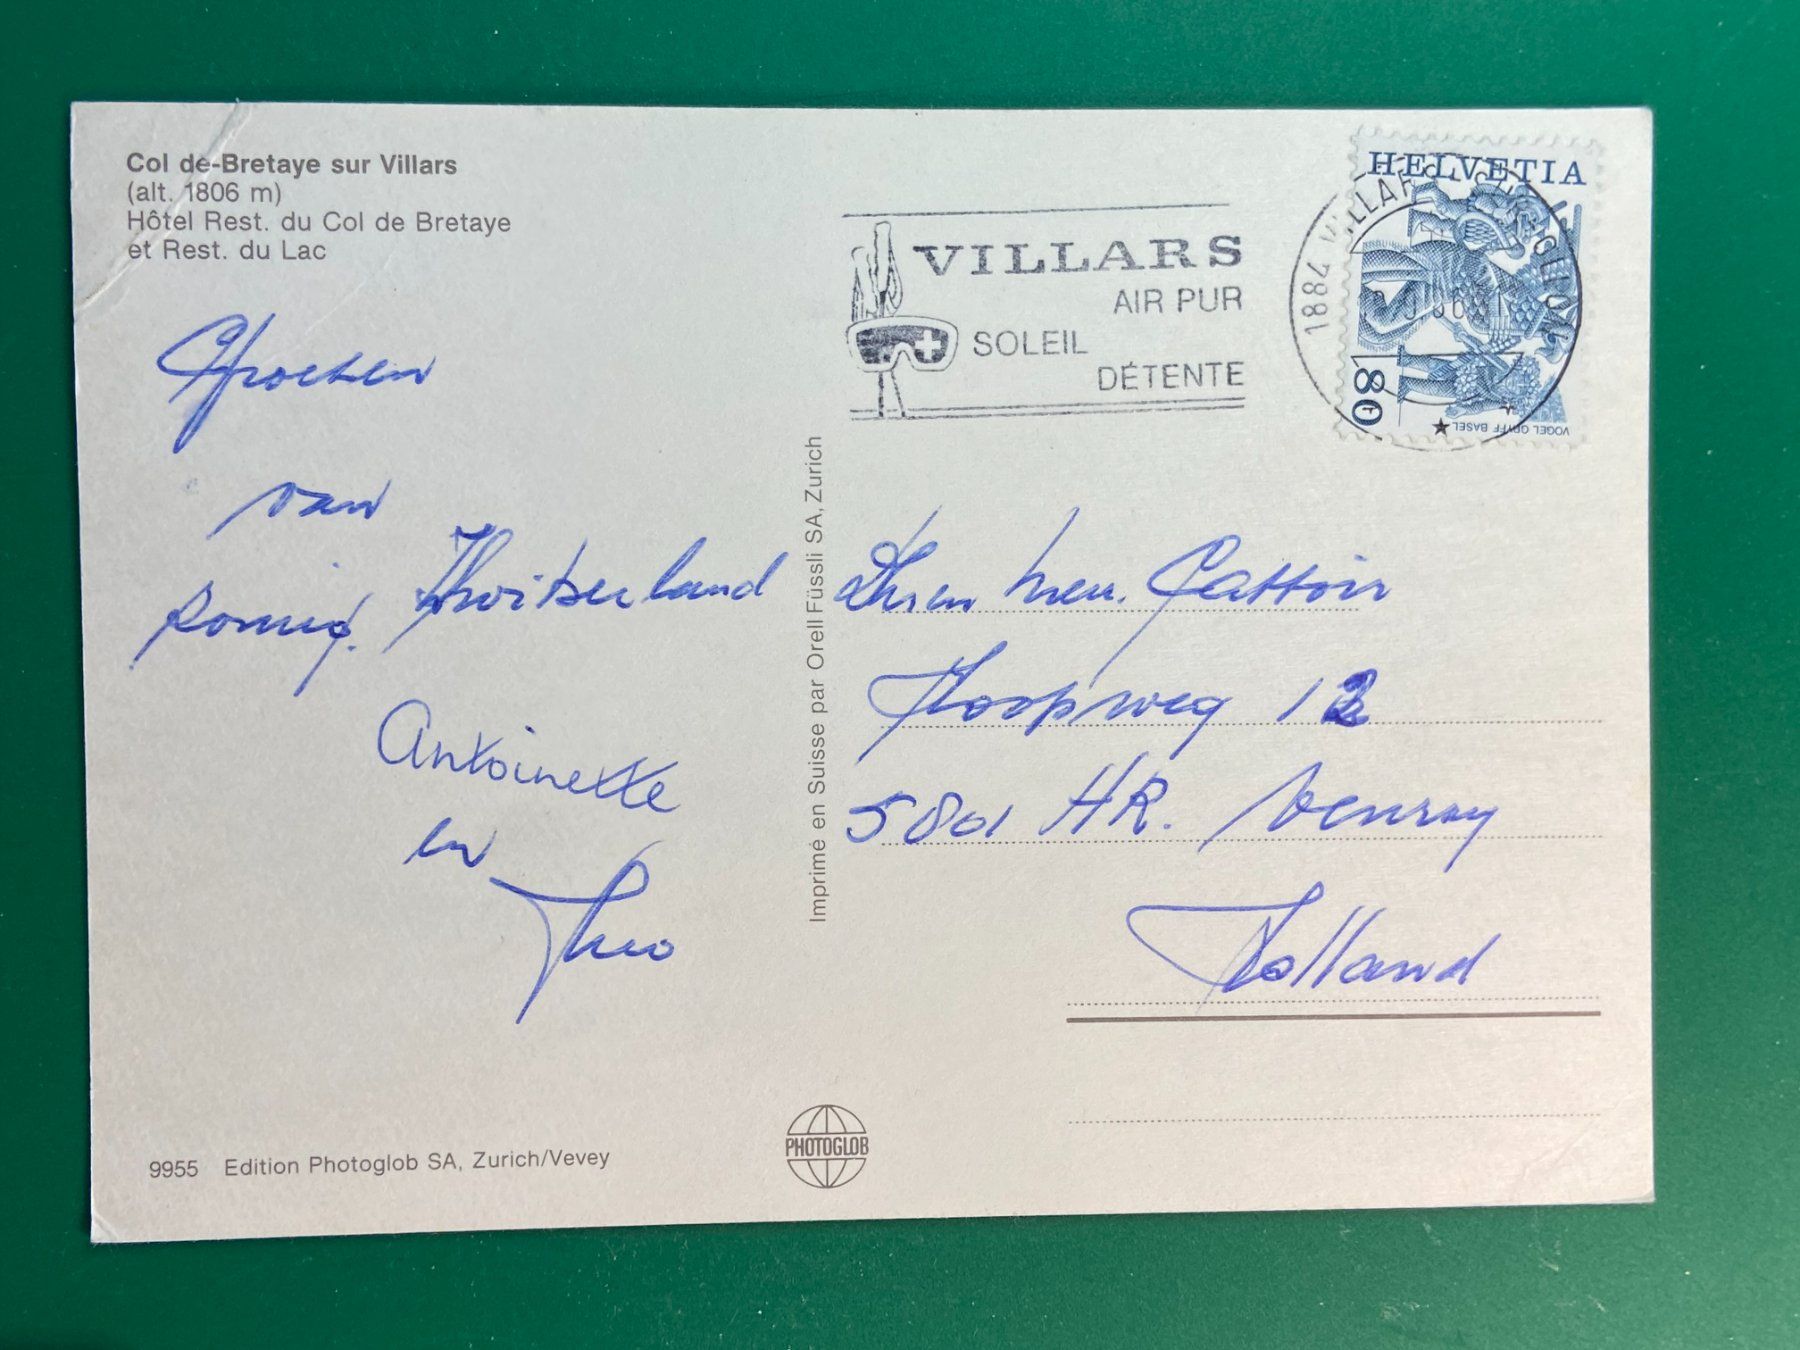 Col de-Bretaye sur Villars
(alt. 1806 m)
Hôtel Rest. du Col de Bretaye
et Rest. du Lac
Groeten
van
Zwitserland
Antoinette
en
Theo
9955 Edition Photoglob SA, Zurich/Vevey
Imprimé en Suisse par Orell Füssli SA, Zurich
PHOTOGLOB
VILLARS
AIR PUR
SOLEIL
DÉTENTE
HELVETIA
80
VOGEL GRYFF BASEL
1884 VILLARS
Cattoir
12
5801 HR. Venray
Holland